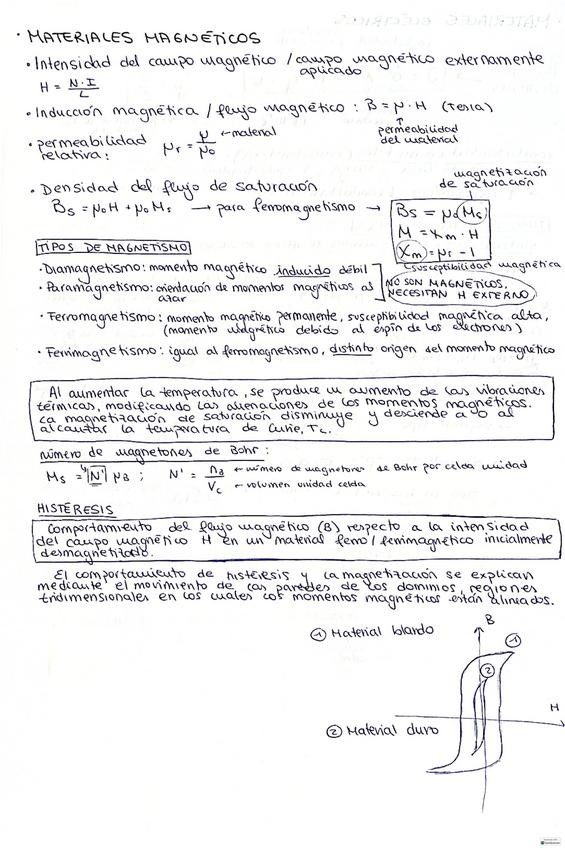 · MATERIALES MAGNÉTICOS
· Intensidad del campo magnético / campo magnético externamente
aplicado
H = N·I / L
· Inducción magnética / flujo magnético : B = μ · H (Tesla)
permeabilidad
del material
· permeabilidad
relativa :
μr = μ / μ0 ← material
· Densidad del flujo de saturación
magnetización
de saturación
Bs = μ0H + μ0Ms → para ferromagnetismo → Bs = μ0Ms
M = Xm · H
Xm = μr - 1
susceptibilidad magnética
TIPOS DE MAGNETISMO
· Diamagnetismo : momento magnético inducido débil
· Paramagnetismo : orientación de momentos magnéticos al
azar
NO SON MAGNÉTICOS,
NECESITAN H EXTERNO
· Ferromagnetismo : momento magnético permanente, susceptibilidad magnética alta,
(momento magnético debido al espín de los electrones)
· Ferrimagnetismo : igual al ferromagnetismo, distinto origen del momento magnético
Al aumentar la temperatura, se produce un aumento de las vibraciones
térmicas, modificando las alineaciones de los momentos magnéticos.
La magnetización de saturación disminuye y desciende a 0 al
alcanzar la temperatura de Curie, Tc.
número de magnetones de Bohr :
Ms = N' μB ; N' = nB / Vc
← número de magnetones de Bohr por celda unidad
← volumen unidad celda
HISTÉRESIS
Comportamiento del flujo magnético (B) respecto a la intensidad
del campo magnético H en un material ferro/ferrimagnético inicialmente
desmagnetizado.
El comportamiento de histéresis y la magnetización se explican
mediante el movimiento de las paredes de los dominios, regiones
tridimensionales en los cuales los momentos magnéticos están alineados.
① Material blando
B
①
②
H
② Material duro